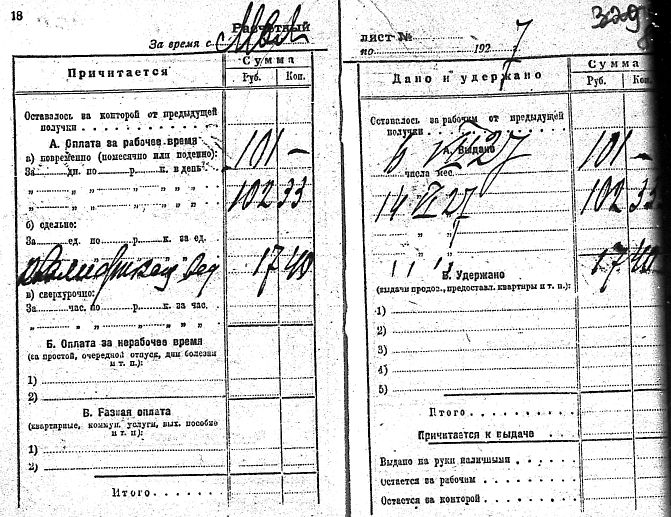 18
Расчетный
За время с Май
Причитается
Сумма
Руб. Коп.
Оставалось за конторой от предыдущей
получки
А. Оплата за рабочее время
а) повременно (помесячно или поденно): 101 —
За дн. по р. к. в день
„ „ „ „ „ „ 102 33
б) сдельно:
За ед. по р. к. за ед.
17 40
в) сверхурочно:
За час. по р. к. за час.
„ „ „ „ „ „
Б. Оплата за нерабочее время
(за простой, очередной отпуск, дни болезни
и т. п.):
1)
2)
В. Разная оплата
(квартирные, коммун. услуги, вых. пособие
и т. п.):
1)
2)
Итого
лист №
по 1927
Дано и удержано
Сумма
Руб. Коп.
Оставалось за рабочим от предыдущей
получки
А. Выдано
VI 27 101 —
числа мес.
14 VI 27 102 33
„ „
17 40
Б. Удержано
(выдачи продов., предоставл. квартиры и т. п.):
1)
2)
3)
4)
5)
Итого
Причитается к выдаче
Выдано на руки наличными
Остается за рабочим
Остается за конторой